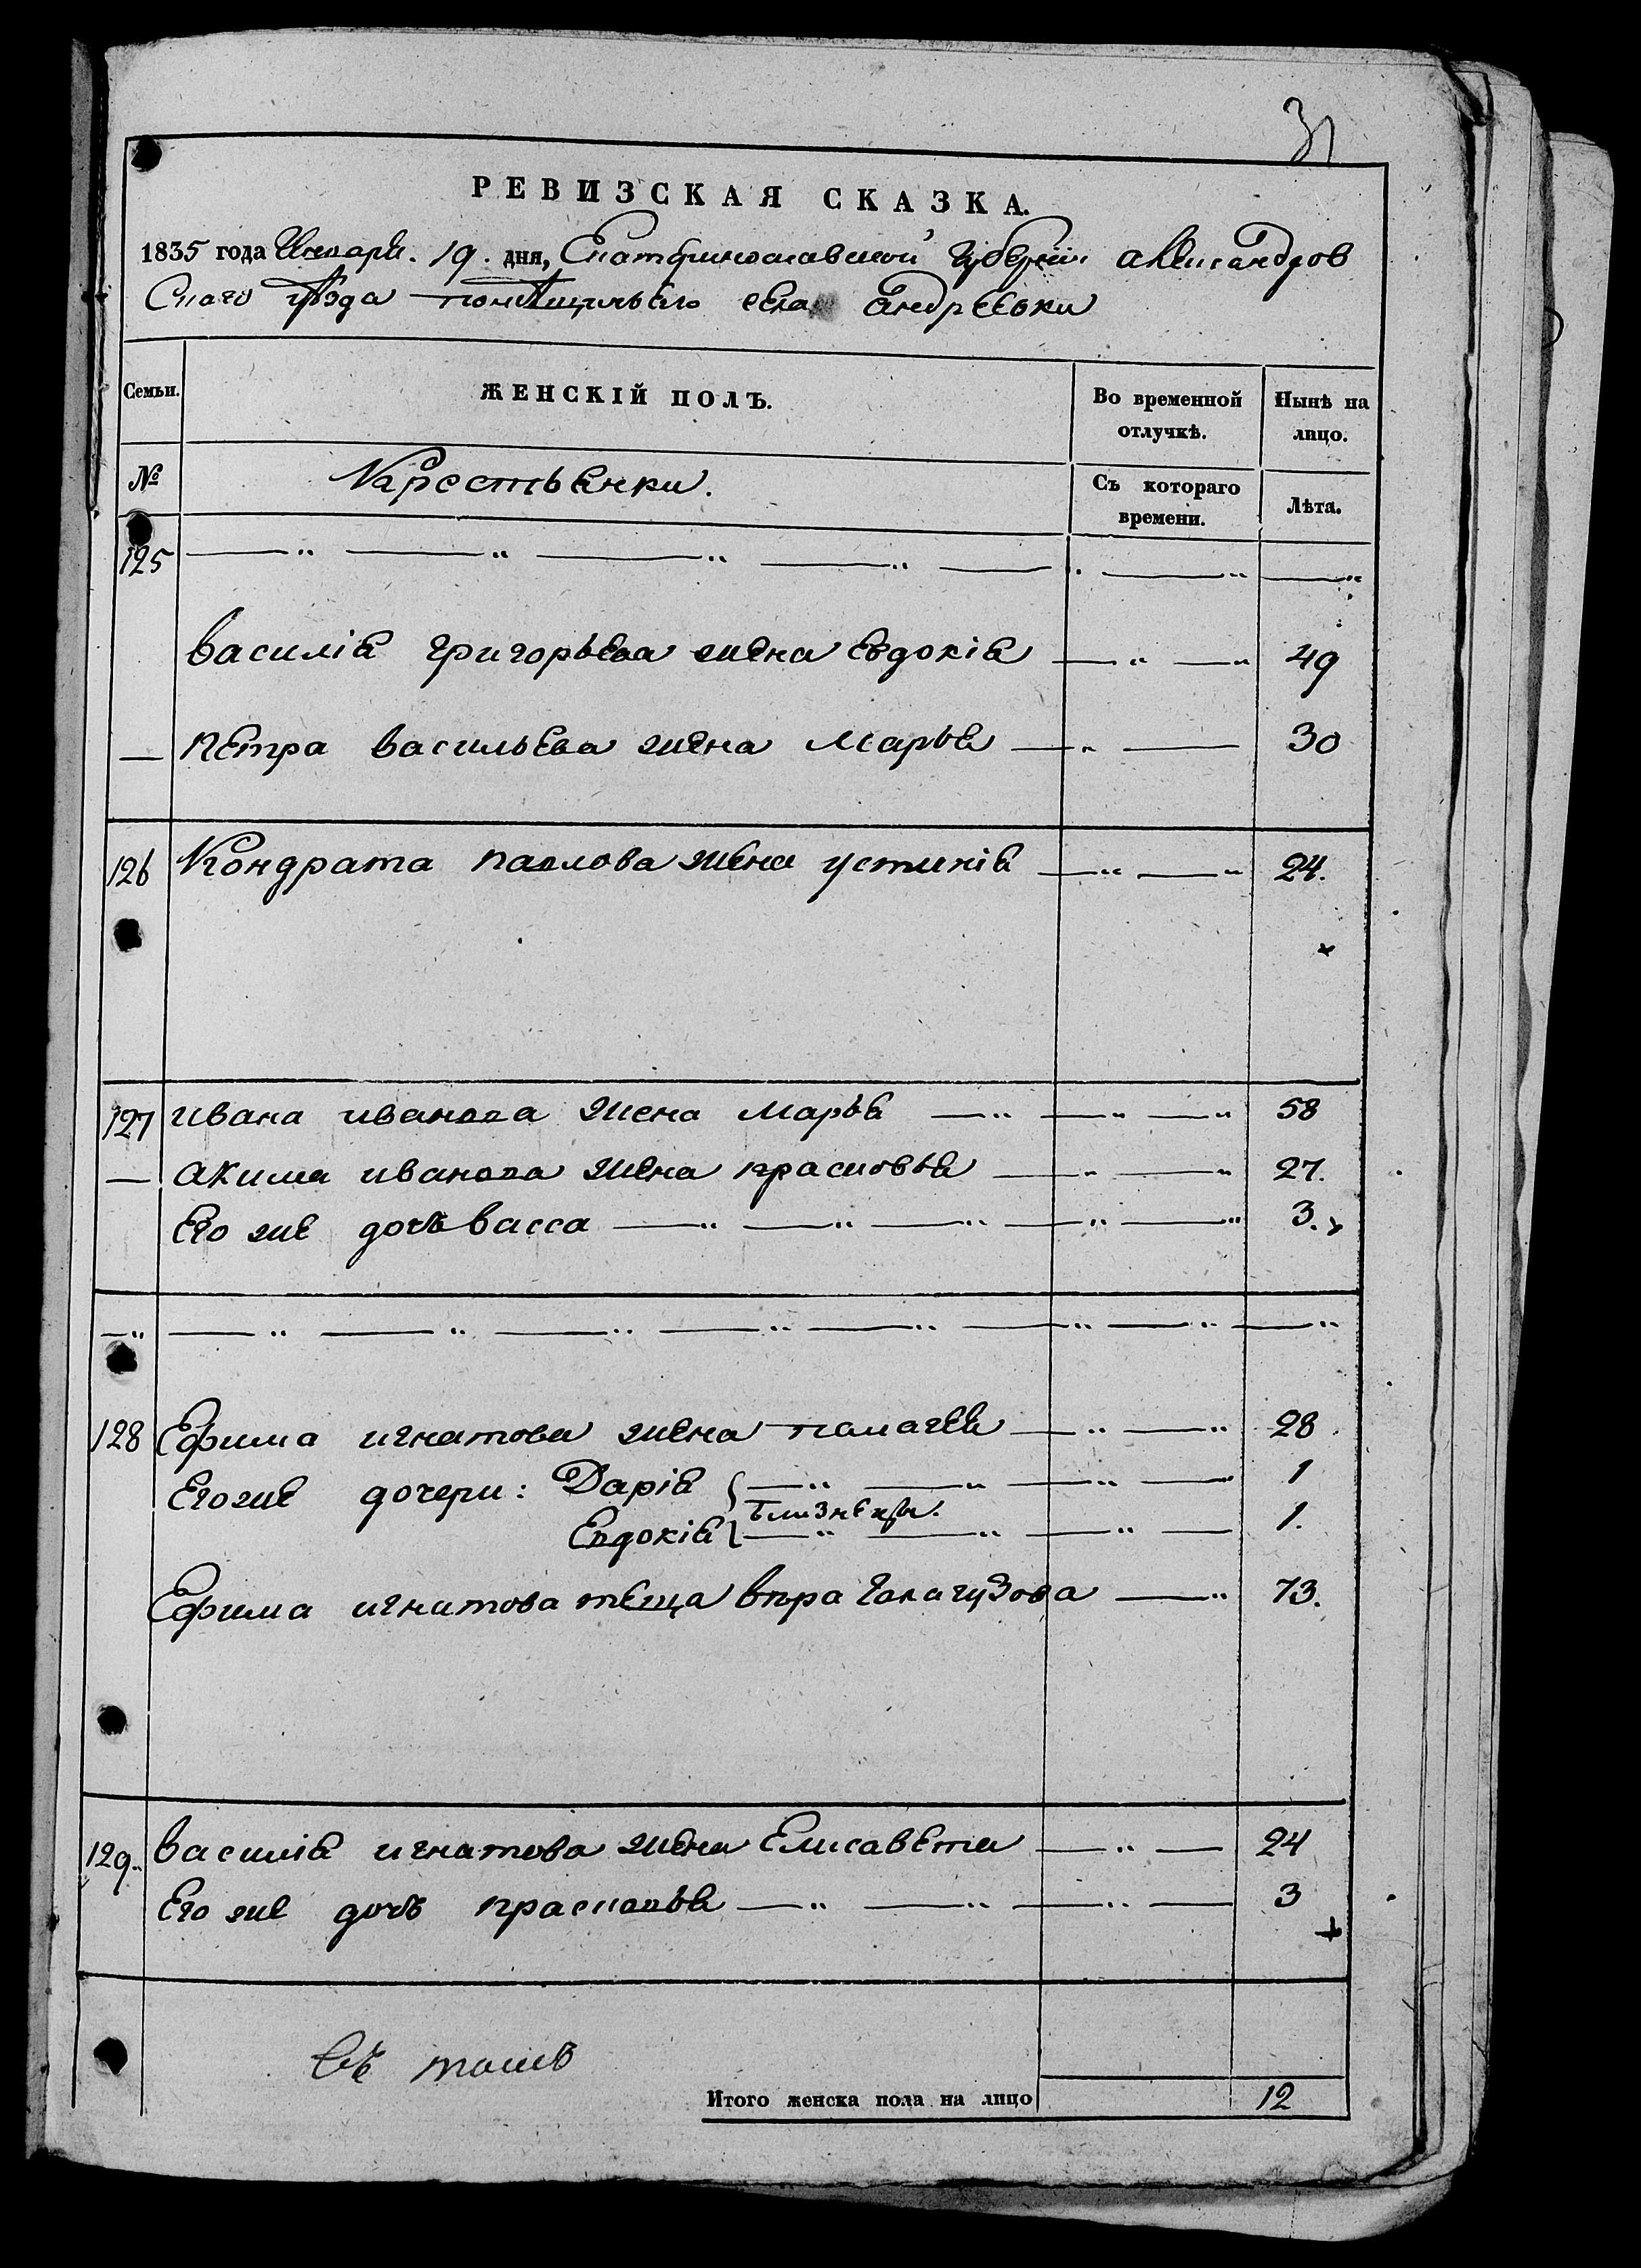 31
РЕВИЗСКАЯ СКАЗКА.
1835 года Января. 19. дня, Екатеринославской Губернии александров
Скаго уѣзда помѣщичьяго села андреевки
Семьи. ЖЕНСКІЙ ПОЛЪ. Во временной отлучкѣ. Нынѣ на лицо.
№ Крестьянки. Съ котораго времени. Лѣта.
125
василія григорьева жена евдокія 49
— петра васильева жена марья 30
126 Кондрата павлова жена устинія 24.
127 ивана иванова жена марья 58
— акима иванова жена прасковья 27.
Его же дочь васса 3.
128 Ефима игнатова жена палагея 28
Его же дочери: Дарія 1
близнецы.
Евдокія 1.
Ефима игнатова теща вѣра галагузова 73.
129. василія игнатова жена Елисавета 24
Его же дочь прасковья 3
Итого женска пола на лицо 12